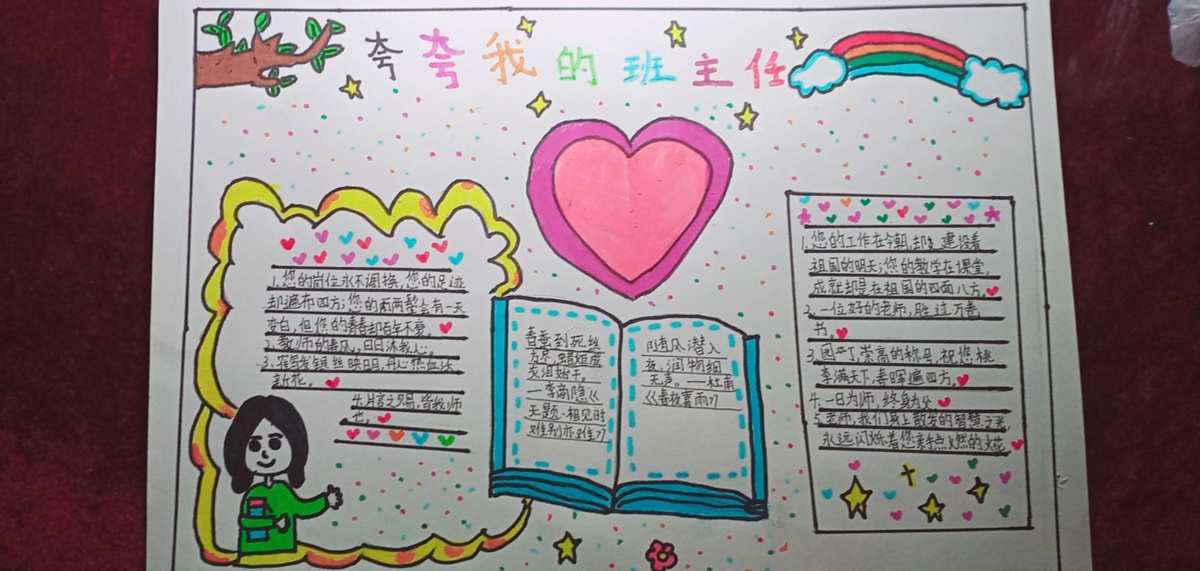 夸夸我的班主任
1.您的岗位永不调换,您的足迹
却遍布四方;您的两鬓会有一天
变白,但您的青春却百年不衰。
2.教师的春风,日日沐我心。
3.
新花。
4.片言之赐,皆我师
也。
春蚕到死丝
方尽,蜡炬成
灰泪始干。
—李商隐《
无题·相见时
难别亦难》
随风潜入
夜,润物细
无声。—杜甫
《春夜喜雨》
1.您的工作在今朝,却 建设着
祖国的明天;您的教学在课堂,
成就却是在祖国的四面八方。
2.一位好的老师,胜过万卷
书。
3.园丁,崇高的称号,祝您桃
李满天下,春晖遍四方。
4.一日为师,终身为父
5.老师,我们身上散发的智慧之光,
永远闪烁着您亲手点燃的火花